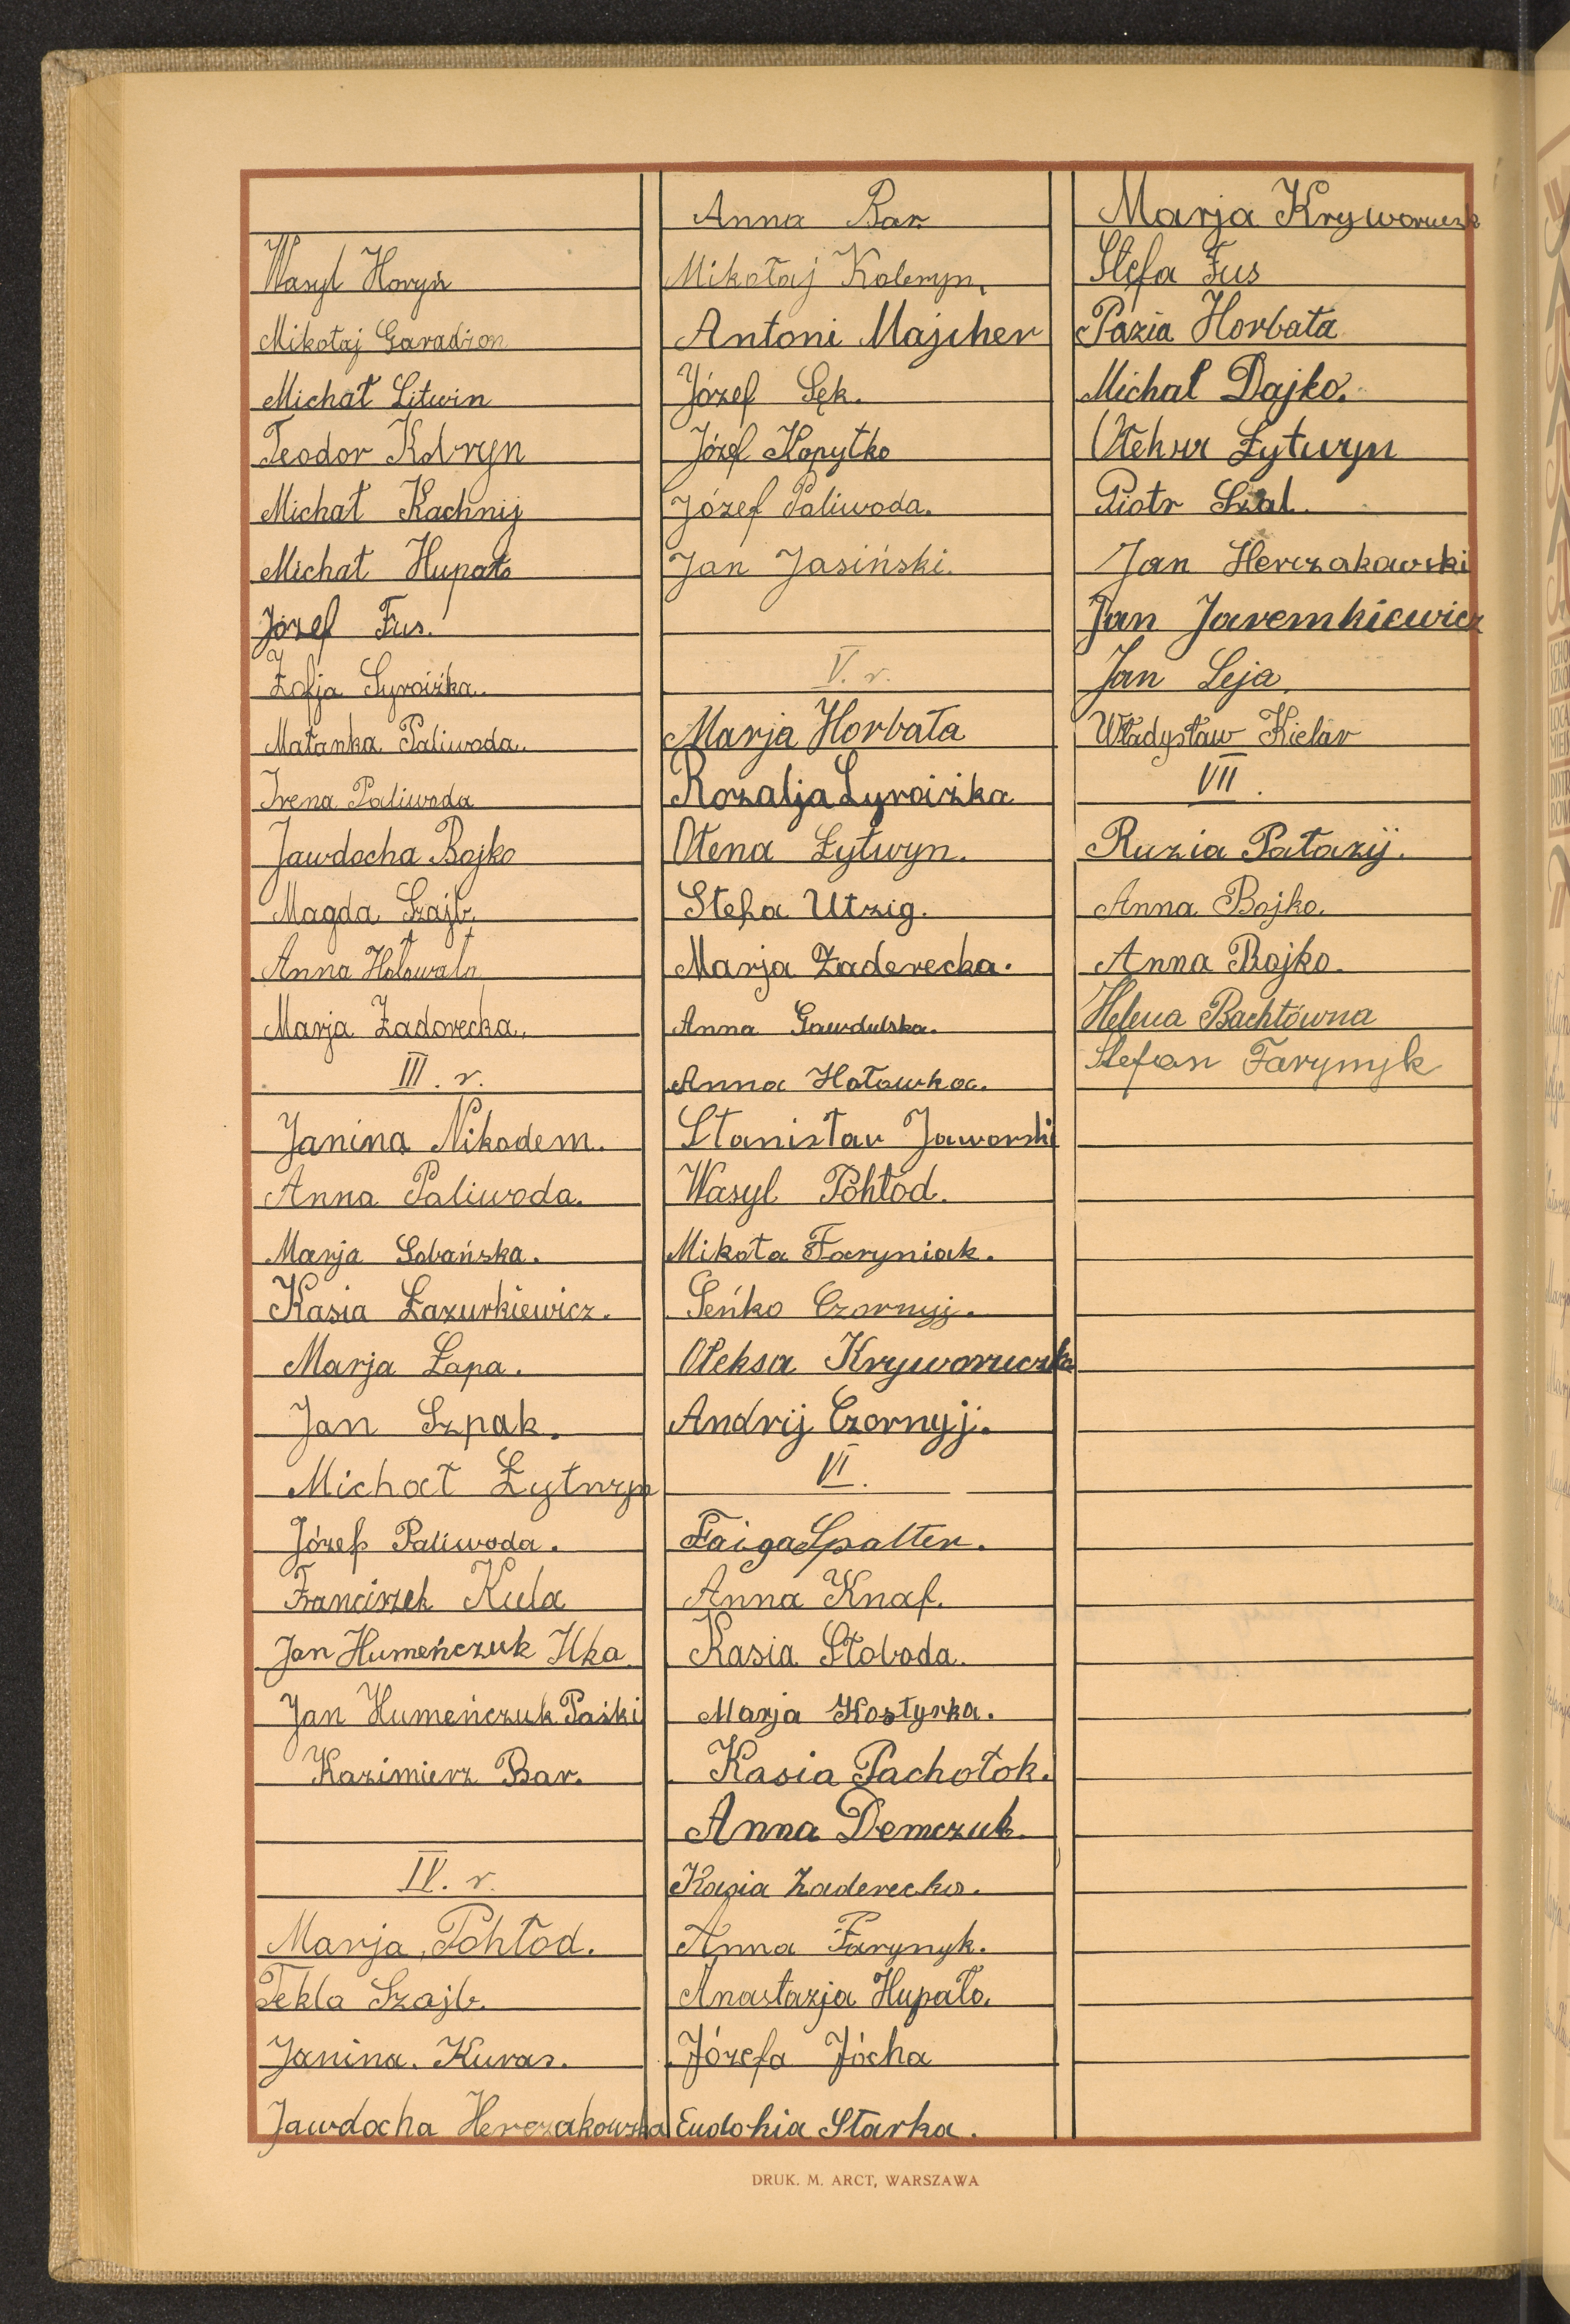 Wasyl Horyń
Mikołaj Garadion
Michał Litwin
Teodor
Michał Kachnij
Michał Hupało
Józef Fus.
Zofja Syroiżka.
Małanka Paliwoda.
Irena Paliwoda
Jawdocha Bojko
Magda Szajb.
Anna Hołowata
Marja Zadorecka.
III. r.
Janina Nikodem.
Anna Paliwoda.
Marja Sobańska.
Kasia Łazurkiewicz.
Marja Łapa.
Jan Szpak.
Michał Łytwyn
Józef Paliwoda.
Franciszek Kula
Jan Humeńczuk Ilka
Jan Humeńczuk Paśki
Kazimierz Bar.
IV. r.
Marja Pohłod.
Tekla Szajb.
Janina. Kuras.
Jawdocha Herczakowska
Anna Bar.
Mikołaj
Antoni Majcher
Józef Sęk.
Józef Kopytko
Józef Paliwoda.
Jan Jasiński.
V. r.
Marja Horbata
Rozalja Syroiżka
Ołena Łytwyn.
Stefa Utzig.
Marja Zaderecka.
Anna Gawdulska.
Anna Hołowka.
Stanisław Jaworski
Wasyl Pohłod.
Mikoła Faryniak.
Seńko Czornyj.
Ołeksa Kryworuczka
Andrij Czornyj.
VI.
Faiga Spalter.
Anna Knaf.
Kasia Słoboda.
Marja Kostyrka.
Kasia Pachołok.
Anna Demczuk.
Kasia Zaderecka.
Anna Farynyk.
Anastazja Hupało.
Józefa Jócha
Eudokia Starka.
Marja Kryworuczk
Stefa Fus
Pazia Horbata
Michał Dajko.
Łytwyn
Piotr Szal.
Jan Herczakowski
Jan Jaremkiewicz
Jan Leja.
Władysław Kielar
VII.
Ruzia Patazij.
Anna Bojko.
Anna Bojko.
Helena Bachtówna
Stefan Farynyk
DRUK. M. ARCT, WARSZAWA